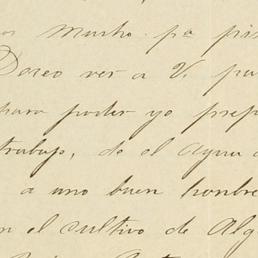 mucho pa
Deseo ver a V. pa
para poder yo prep
trabajo, de el agua
a uno buen hombre
n el cultivo de Alg